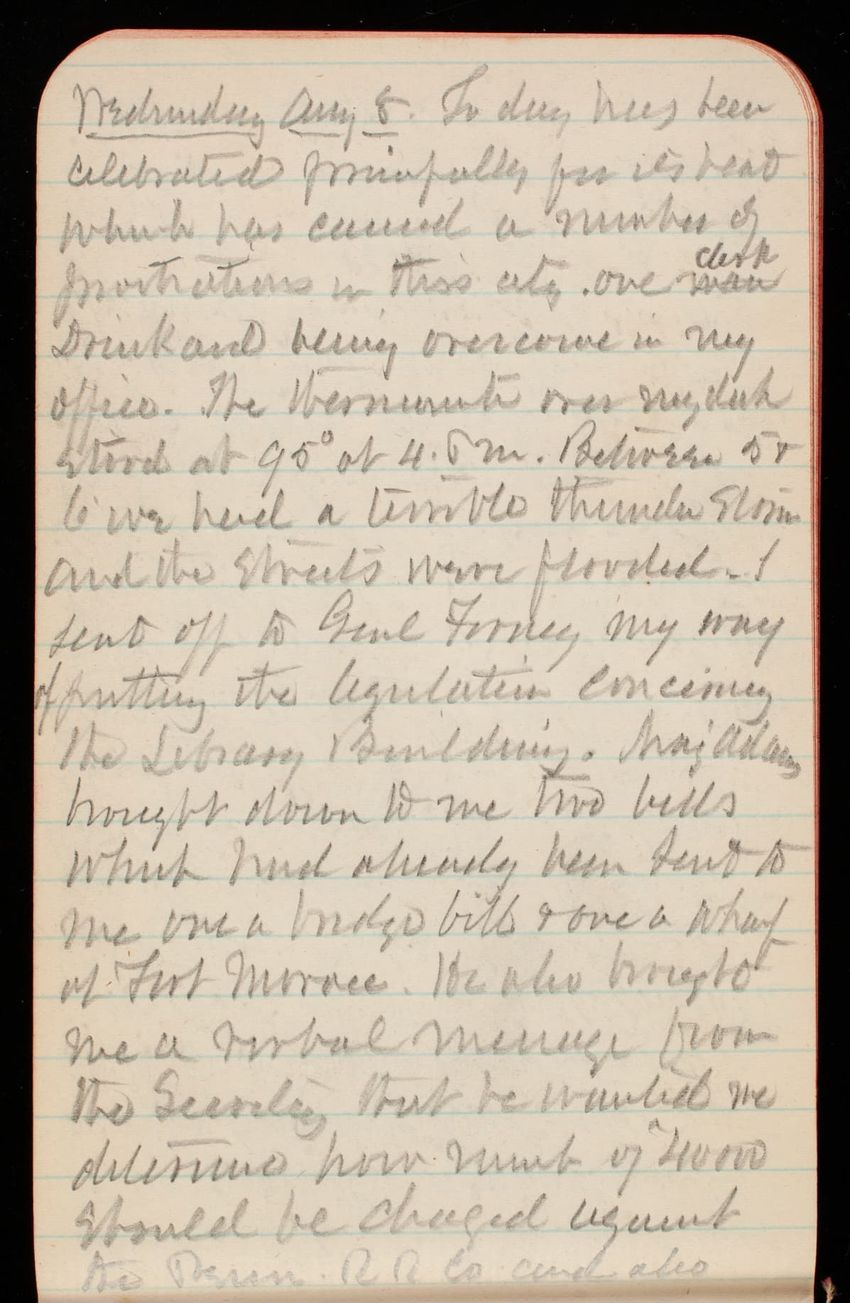 Wednesday Aug 8. To day has been
celebrated principally for its heat
which has caused a number of
prostrations in this city. one man clerk
Drinkard being overcome in my
office. The thermometer over my desk
stood at 95° at 4. P m. Between 5 &
6 we had a terrible thunder storm
and the streets were flooded. I
sent off to Genl Forney my way
of putting the legislation concerning
the Library Building. Maj Adams
brought down to me two bills
which had already been sent to
me one a bridge bill & one a wharf
at Fort Monroe. He also brought
me a verbal message from
the Secretary that he wanted me
determine how much of "40000
should be charged against
the Penn. R R Co and also